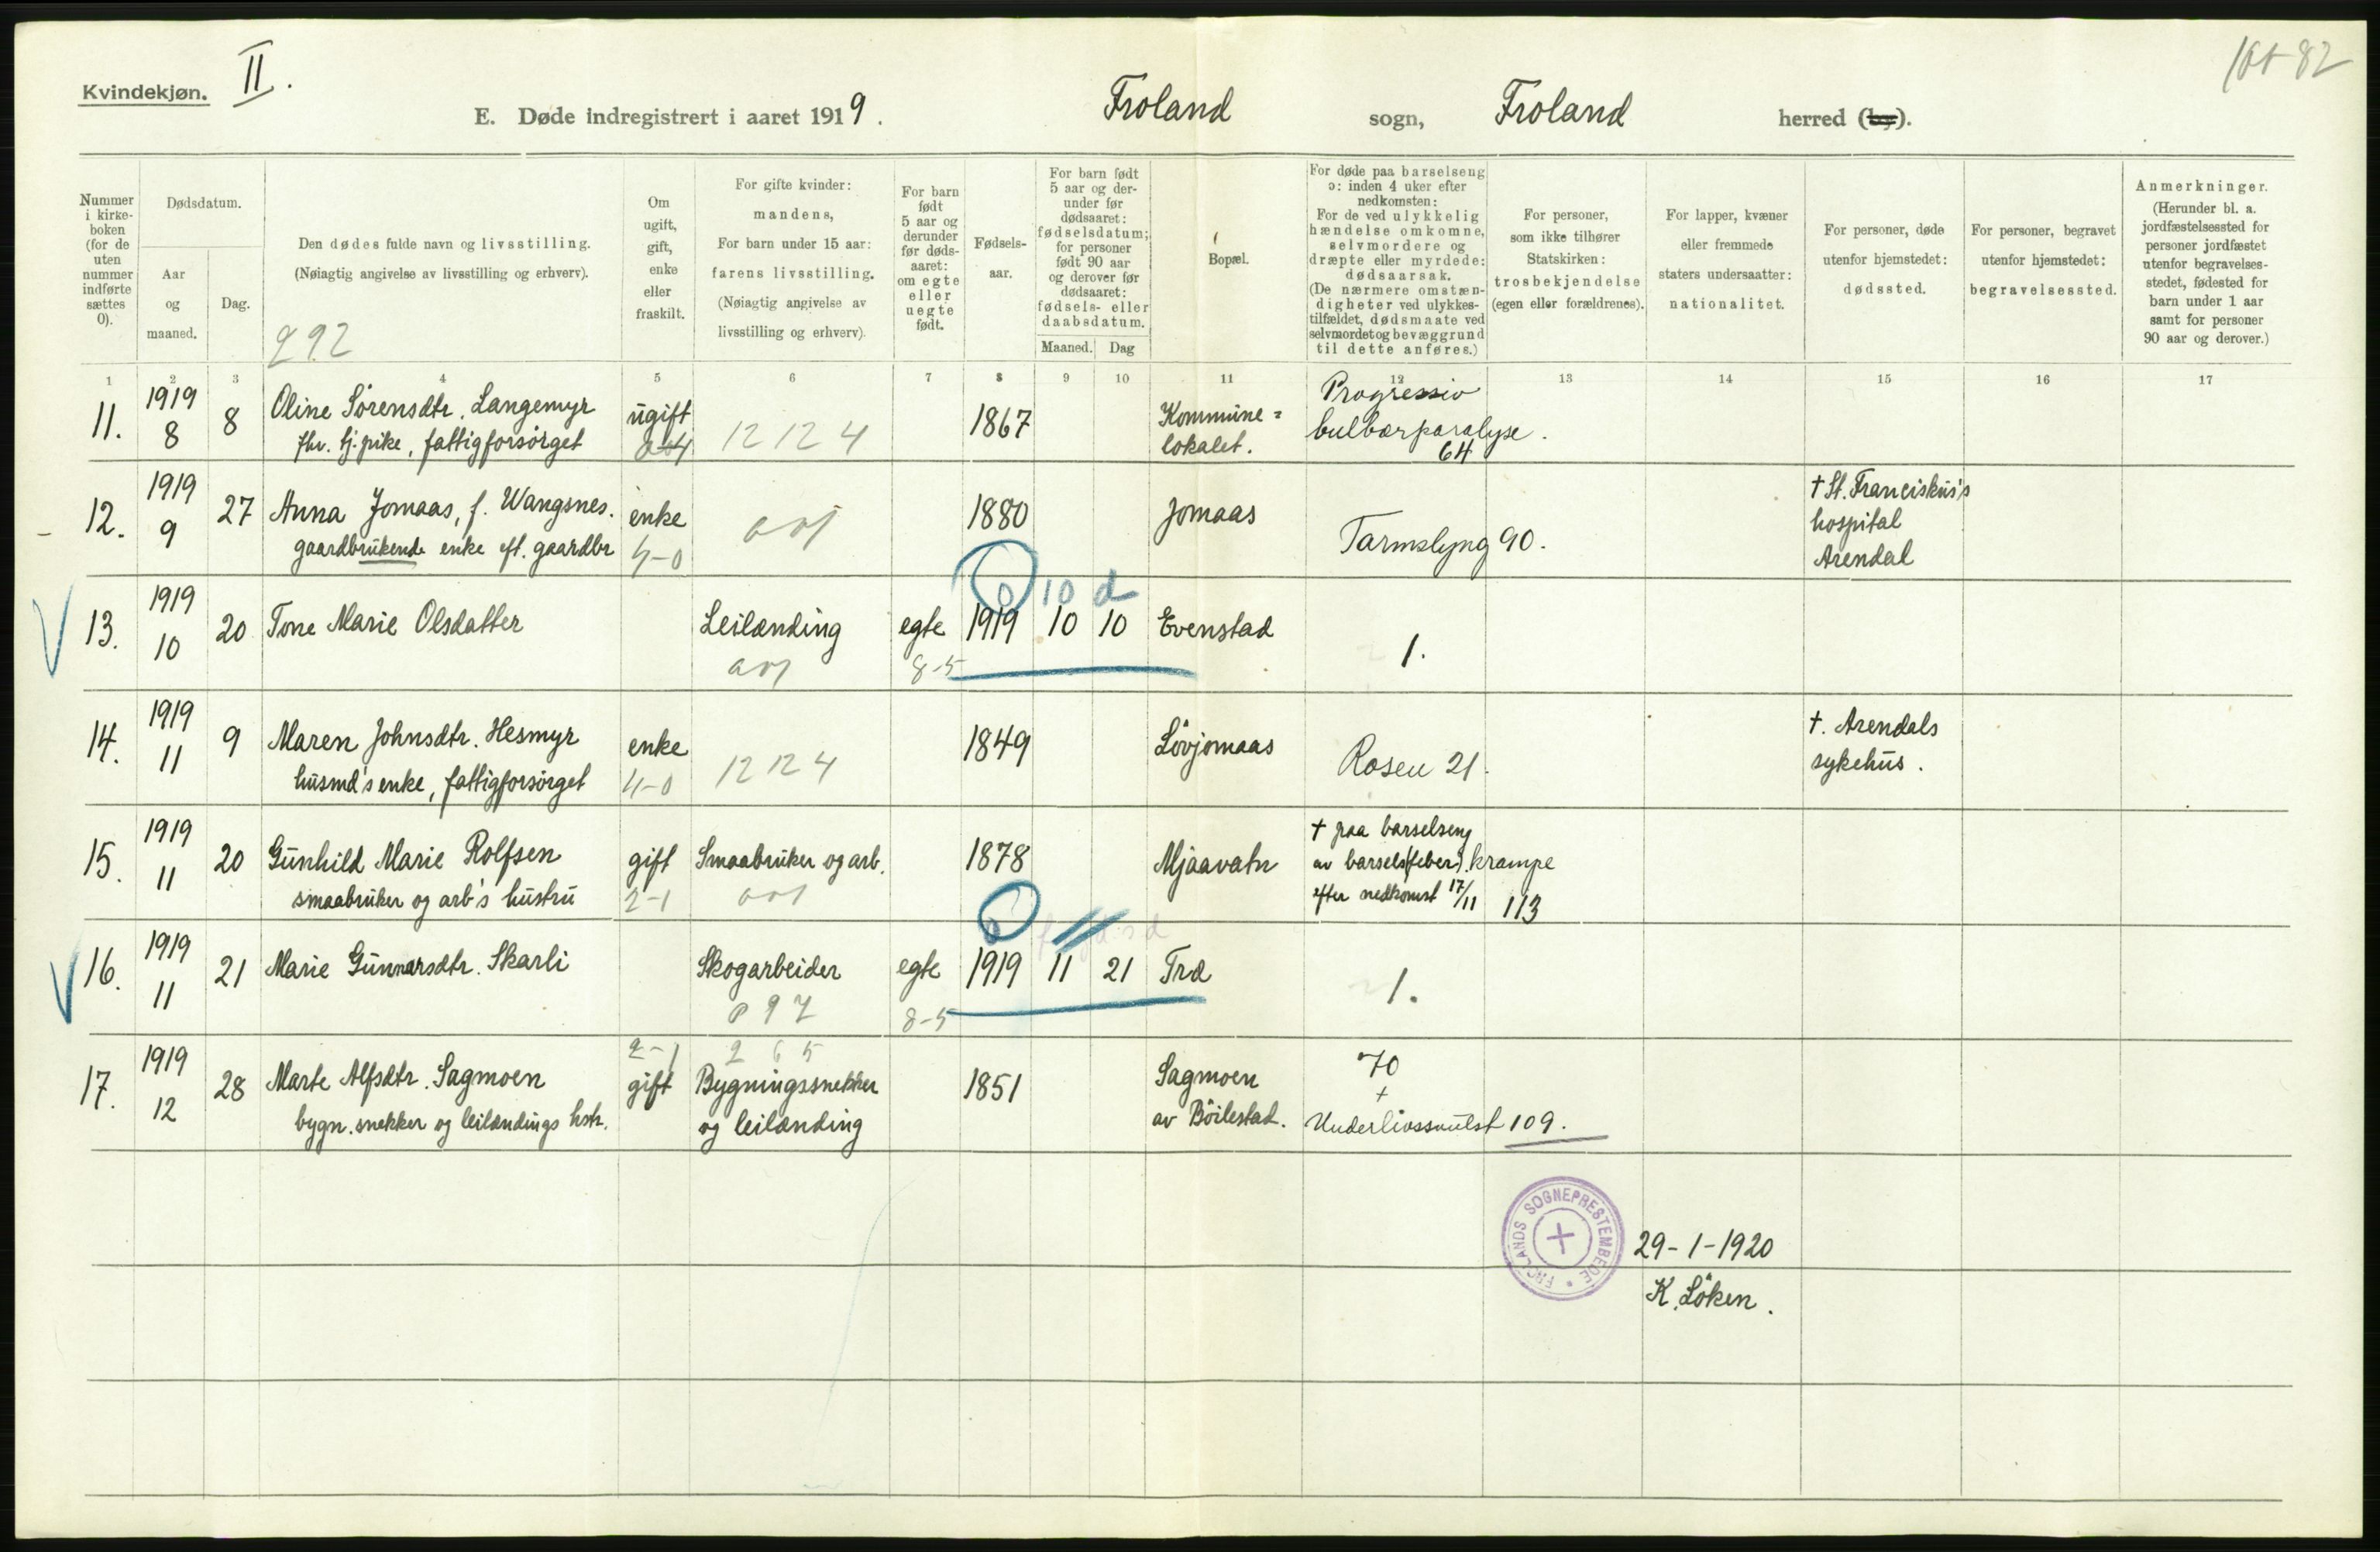 Kvindekjøn. II.
E. Døde indregistrert i aaret 1919. Froland sogn, Froland herred (by).
Nummer i kirke-boken (for de uten nummer indførte sættes 0).
Dødsdatum.
Aar og maaned.
Dag.
Den dødes fulde navn og livsstilling.
(Nøiagtig angivelse av livsstilling og erhverv).
292
Om ugift, gift, enke eller fraskilt.
For gifte kvinder: mandens,
For barn under 15 aar: farens livsstilling.
(Nøiagtig angivelse av livsstilling og erhverv).
For barn født 5 aar og derunder før døds-aaret: om egte eller uegte født.
Fødsels-aar.
For barn født 5 aar og der-under før dødsaaret: fødselsdatum; for personer født 90 aar og derover før dødsaaret: fødsels- eller daabsdatum.
Maaned. Dag
Bopæl.
For døde paa barselseng ɔ: inden 4 uker efter nedkomsten:
For de ved ulykkelig hændelse omkomne, selvmordere og dræpte eller myrdede: dødsaarsak.
(De nærmere omstæn-digheter ved ulykkes-tilfældet, dødsmaate ved selvmordet og bevæggrund til dette anføres.)
For personer, som ikke tilhører Statskirken: trosbekjendelse (egen eller forældrenes).
For lapper, kvæner eller fremmede staters undersaatter: nationalitet.
For personer, døde utenfor hjemstedet: dødssted.
For personer, begravet utenfor hjemstedet: begravelsessted.
Anmerkninger.
(Herunder bl. a. jordfæstelsessted for personer jordfæstet utenfor begravelses-stedet, fødested for barn under 1 aar samt for personer 90 aar og derover.)
1 2 3 4 5 6 7 8 9 10 11 12 13 14 15 16 17
11. 1919 8 8 Oline Sörensdtr. Langemyr ugift 1867 Kommune= Progressiv
fhv. tj.pike, fattigforsörget 12 12 4 lokalet. bulbærparalyse. 64
12. 1919 9 27 Anna Jomaas, f. Wangsnes. enke 1880 Jomaas Tarmslyng 90. † St. Franciskus's
gaardbrukende enke eft. gaardbr 4-0 hospital
Arendal
0 10 d
13. 1919 10 20 Tone Marie Olsdatter Leilænding egte 1919 10 10 Evenstad 1.
8-5
14. 1919 11 9 Maren Johnsdtr. Hesmyr enke 1849 Lövjomaas Rosen 21. †. Arendals
husmd's enke, fattigforsörget 4-0 12 12 4 sykehus.
15. 1919 11 20 Gunhild Marie Rolfsen gift Smaabruker og arb. 1878 Mjaavatn † paa barselseng
smaabruker og arb's hustru 2-1 av barsels(feber). krampe
efter nedkomst 17/11 113
16. 1919 11 21 Marie Gunnarsdtr. Skarli Skogarbeider egte 1919 11 21 Træ 1.
8-5
17. 1919 12 28 Marte Alfsdtr. Sagmoen 2-1 gift Bygningssnekker 1851 Sagmoen 70
+
bygn. snekker og leilændings hstr. og leilænding av Böilestad. Underlivssvulst 109.
FROLANDS SOGNEPRESTEMBEDE
29-1-1920
K. Löken.